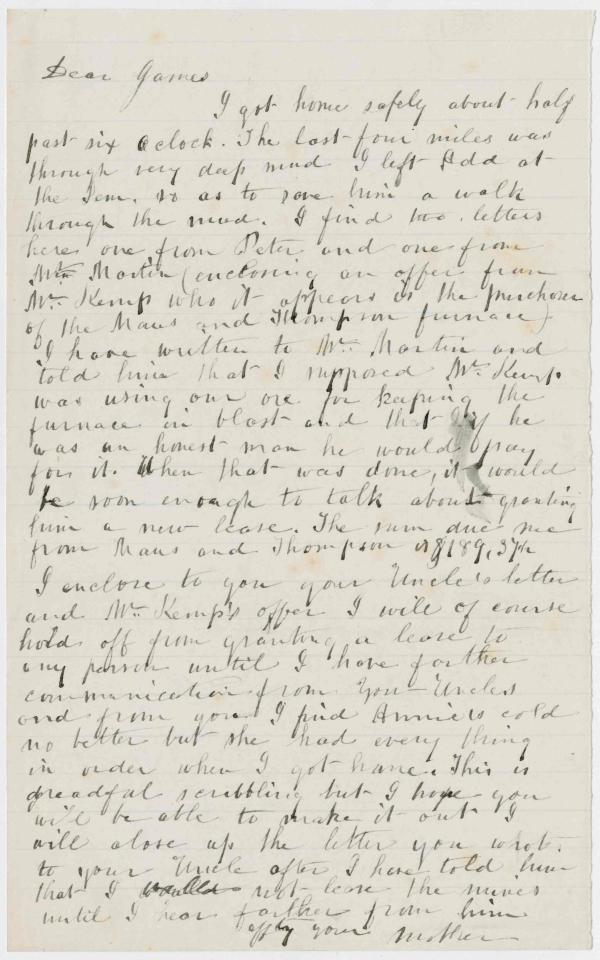 Dear James
I got home safely about half
past six oclock. The last four miles was
through very deep mud I left Edd at
the Dem. so as to save him a walk
through the mud. I find two letters
here one from Peter and one from
Mr. Martin (enclosing an offer from
Mr. Kemp who it appears is the purchaser
of the Maus and Thompson furnace)
I have written to Mr. Martin and
told him that I supposed Mr. Kemp
was using our ore for keeping the
furnace in blast and that if he
was an honest man he would pay
for it. When that was done, it would
be soon enough to talk about granting
him a new lease. The sum due me
from Maus and Thompson is $189,37½
I enclose to you your Uncle's letter
and Mr. Kemp's offer I will of course
hold off from granting a lease to
any person until I have farther
communication from You-Uncles
and from you I find Annie's cold
no better but she had every thing
in order when I got home. This is
dreadful scribbling but I hope you
will be able to make it out I
will close up the letter you wrot.
to your Uncle after I have told him
that I would not lease the mines
until I hear farther from him
affly your Mother